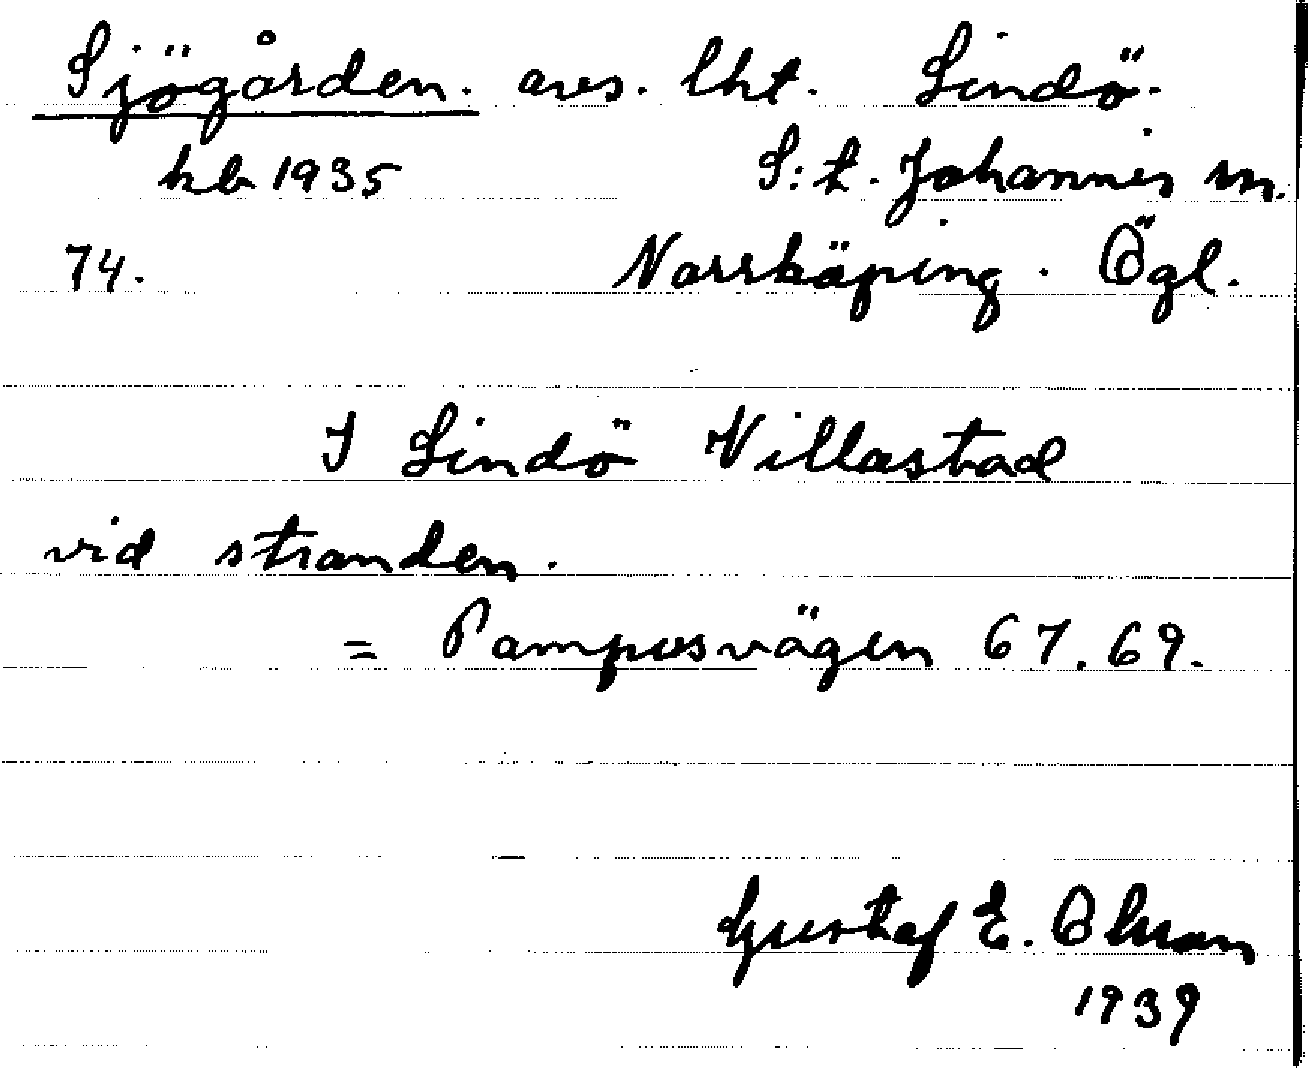 Sjögården. avs. lht. Lindö.
kb 1935 S:t. Johannes m.
74. Norrköping. Ögl.
I Lindö Villastad
vid stranden.
= Pampusvägen 67. 69.
Gustaf E. Ohman
1939